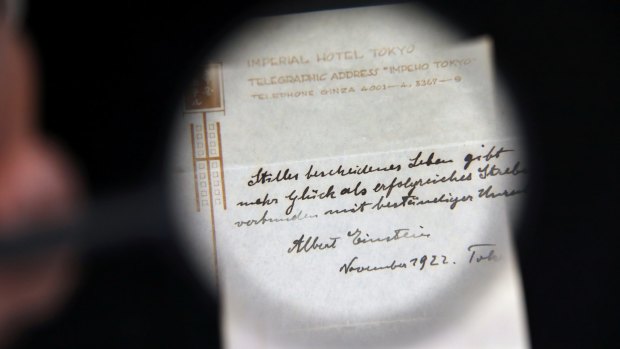 IMPERIAL HOTEL TOKYO
TELEGRAPHIC ADDRESS "IMPEHO TOKYO
TELEPHONE GINZA 4001—4, 8367—9
Stilles bescheidenes Leben gibt
mehr Glück als erfolgreiches Streben
verbunden mit beständiger
Albert Einstein
November 1922. Tok